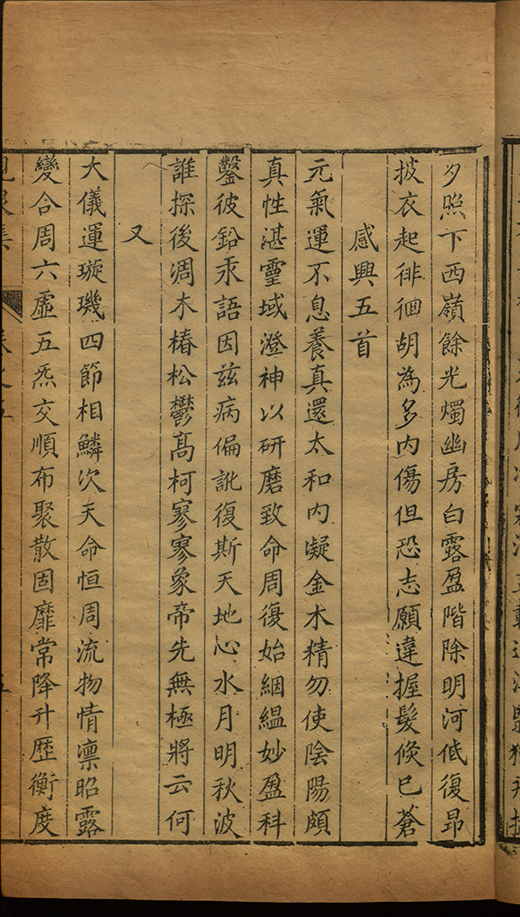 夕照下西嶺餘光燭幽房白露盈階除明河低復昂
披衣起徘徊胡為多内傷但恐志願違握髮倐已蒼
感興五首
元氣運不息養真還太和内凝金木精勿使陰陽頗
真性湛靈域澄神以研磨致命周復始絪縕妙盈科
鑿彼鉛汞語因兹病偏訛復斯天地心水月明秋波
誰探後凋木椿松鬱髙柯寥寥象帝先無極將云何
又
大儀運璇璣四節相鱗次天命恒周流物情凛昭露
變合周六虛五炁交順布聚散固靡常降升歴衡度